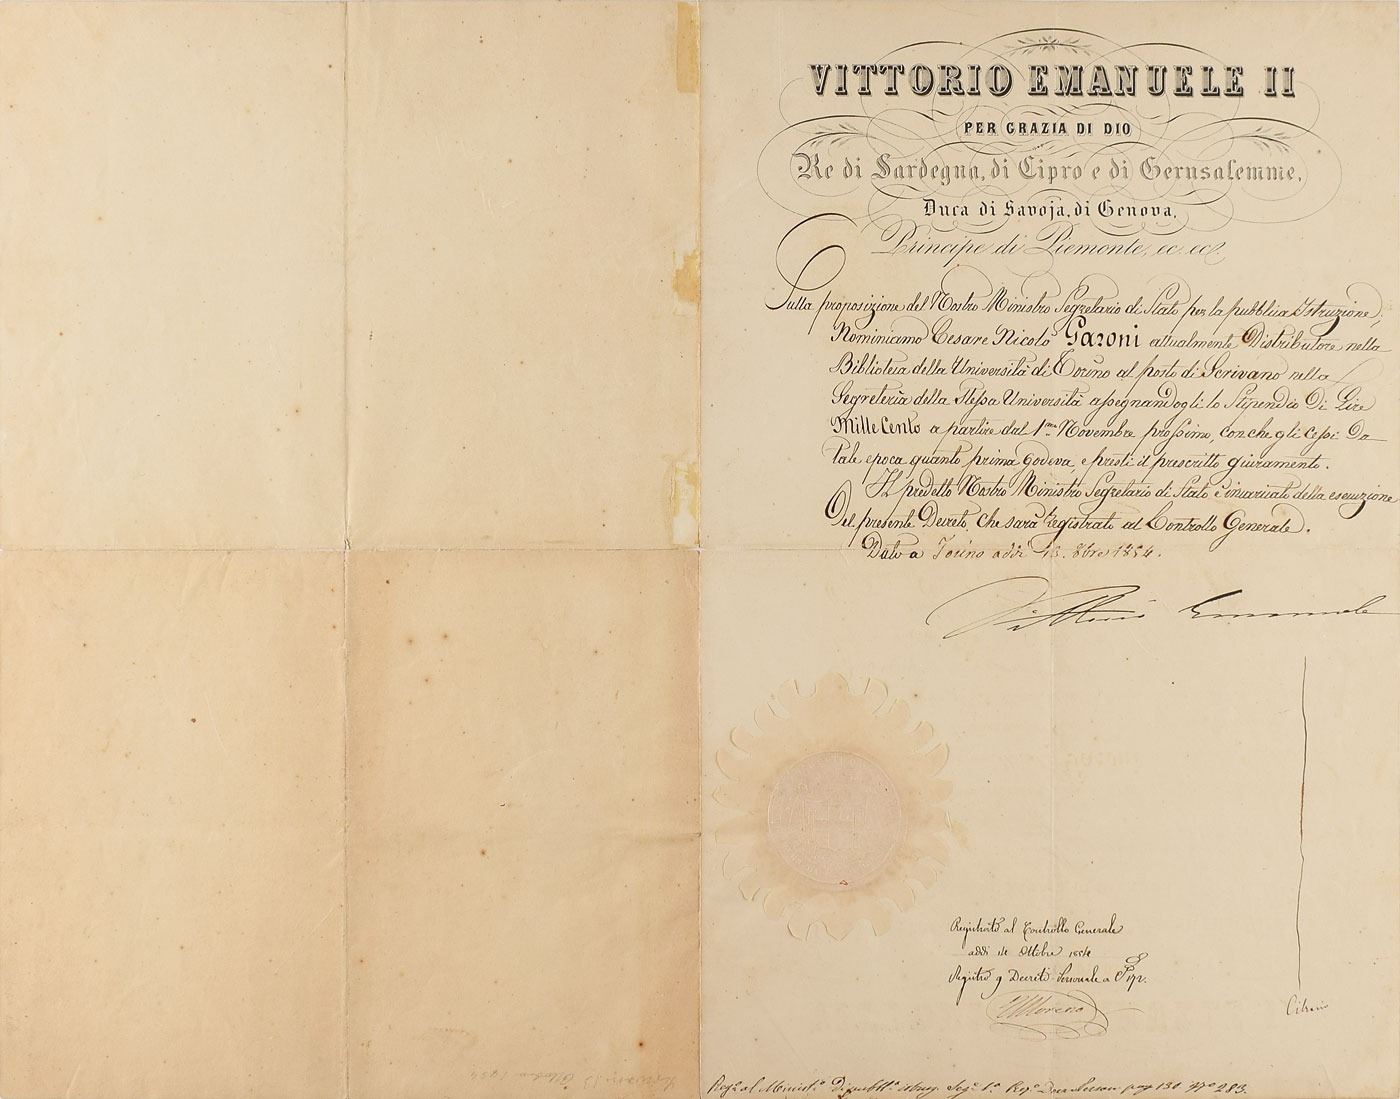 VITTORIO EMANUELE II
PER GRAZIA DI DIO
Re di Sardegna, di Cipro e di Gerusalemme,
Duca di Savoja, di Genova,
Principe di Piemonte, ec. ec.
Sulla proposizione del Nostro Ministro Segretario di Stato per la pubblica Istruzione;
Nominiamo Cesare Nicolò Garoni attualmente Distributore nella
Biblioteca della Università di Torino al posto di Scrivano nella
Segreteria della stessa Università assegnandogli lo Stipendio Di Lire
Mille Cento a partire dal 1.mo Novembre prossimo, con che gli cessi Da
tale epoca quanto prima godeva, e presti il prescritto giuramento.
Il predetto Nostro Ministro Segretario di Stato è incaricato della esecuzione
Del presente Decreto, che sarà Registrato al Controllo Generale.
Dato a Torino addì 13. 8bre 1854.
Vittorio Emanuele
Registrato al Controllo Generale
addì 14 Ottobre 1854
Registro 9 Decreti Personale a
Moreno
Cibrario
Reg.o al Minist.o Di pubbl.a istruz. Seg.a 1.a Reg.o Decr. Person pag 130 N.o 283.